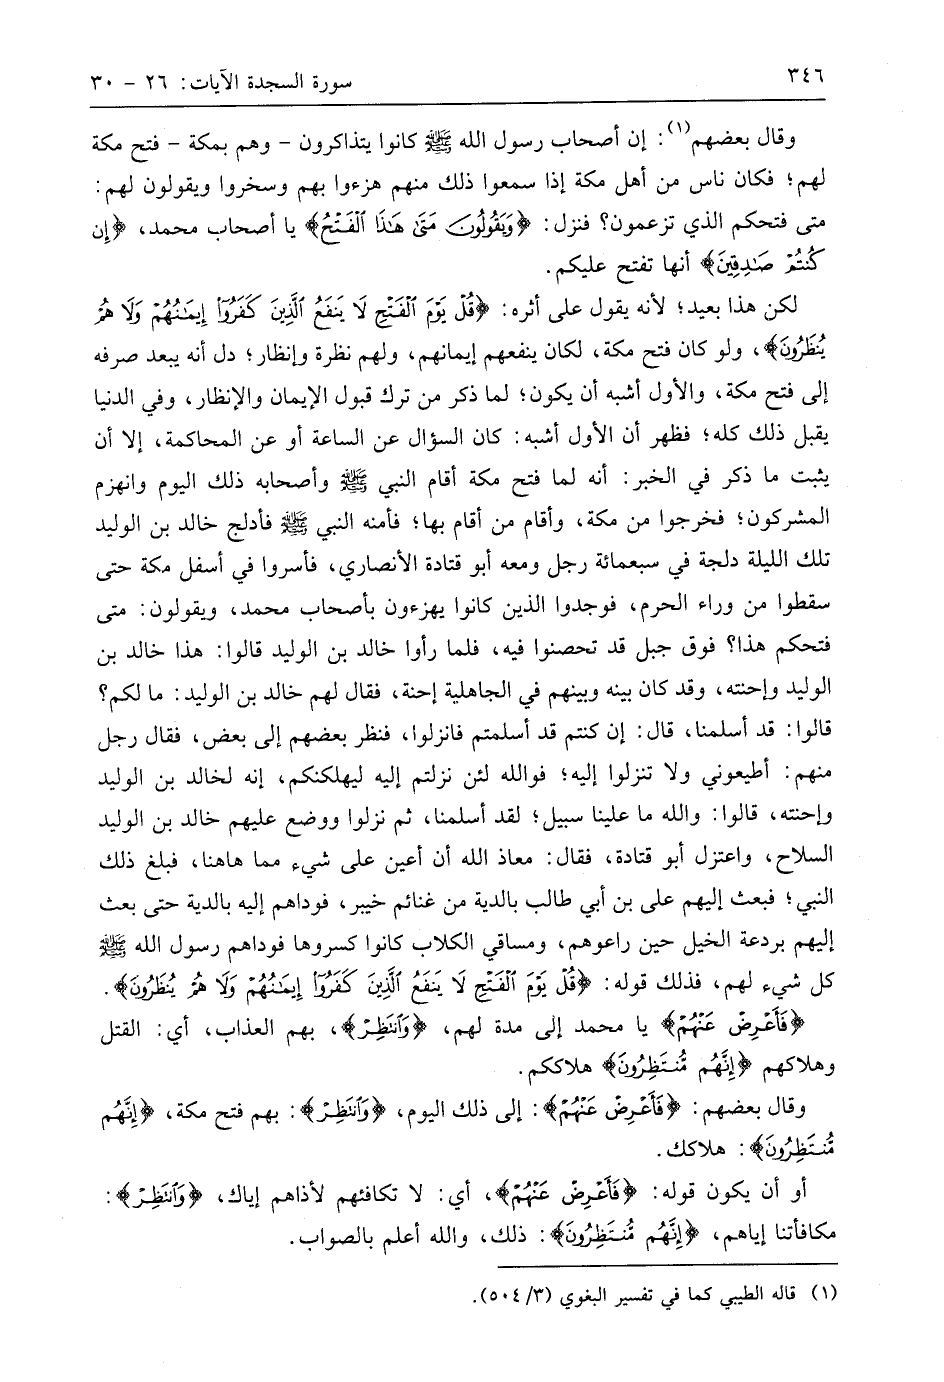 ٣٤٦
سورة السجدة الآيات: ٢٦ - ٣٠
وقال بعضهم(١): إن أصحاب رسول الله ﷺ كانوا يتذاكرون - وهم بمكة - فتح مكة
لهم؛ فكان ناس من أهل مكة إذا سمعوا ذلك منهم هزءوا بهم وسخروا ويقولون لهم:
متى فتحكم الذي تزعمون؟ فنزل: ﴿وَيَقُولُونَ مَتَىٰ هَٰذَا ٱلْفَتْحُ﴾ يا أصحاب محمد، ﴿إِن
كُنتُمْ صَٰدِقِينَ﴾ أنها تفتح عليكم.
لكن هذا بعيد؛ لأنه يقول على أثره: ﴿قُلْ يَوْمَ ٱلْفَتْحِ لَا يَنفَعُ ٱلَّذِينَ كَفَرُوٓا۟ إِيمَٰنُهُمْ وَلَا هُمْ
يُنظَرُونَ﴾، ولو كان فتح مكة، لكان ينفعهم إيمانهم، ولهم نظرة وإنظار؛ دل أنه يبعد صرفه
إلى فتح مكة، والأول أشبه أن يكون؛ لما ذكر من ترك قبول الإيمان والإنظار، وفي الدنيا
يقبل ذلك كله؛ فظهر أن الأول أشبه: كان السؤال عن الساعة أو عن المحاكمة، إلا أن
يثبت ما ذكر في الخبر: أنه لما فتح مكة أقام النبي ﷺ وأصحابه ذلك اليوم وانهزم
المشركون؛ فخرجوا من مكة، وأقام من أقام بها؛ فأمنه النبي ﷺ فأدلج خالد بن الوليد
تلك الليلة دلجة في سبعمائة رجل ومعه أبو قتادة الأنصاري، فأسروا في أسفل مكة حتى
سقطوا من وراء الحرم، فوجدوا الذين كانوا يهزءون بأصحاب محمد، ويقولون: متى
فتحكم هذا؟ فوق جبل قد تحصنوا فيه، فلما رأوا خالد بن الوليد قالوا: هذا خالد بن
الوليد وإحنته، وقد كان بينه وبينهم في الجاهلية إحنة، فقال لهم خالد بن الوليد: ما لكم؟
قالوا: قد أسلمنا، قال: إن كنتم قد أسلمتم فانزلوا، فنظر بعضهم إلى بعض، فقال رجل
منهم: أطيعوني ولا تنزلوا إليه؛ فوالله لئن نزلتم إليه ليهلكنكم، إنه لخالد بن الوليد
وإحنته، قالوا: والله ما علينا سبيل؛ لقد أسلمنا، ثم نزلوا ووضع عليهم خالد بن الوليد
السلاح، واعتزل أبو قتادة، فقال: معاذ الله أن أعين على شيء مما هاهنا، فبلغ ذلك
النبي؛ فبعث إليهم على بن أبي طالب بالدية من غنائم خيبر، فوداهم إليه بالدية حتى بعث
إليهم بردعة الخيل حين راعوهم، ومساقي الكلاب كانوا كسروها فوداهم رسول الله ﷺ
كل شيء لهم، فذلك قوله: ﴿قُلْ يَوْمَ ٱلْفَتْحِ لَا يَنفَعُ ٱلَّذِينَ كَفَرُوٓا۟ إِيمَٰنُهُمْ وَلَا هُمْ يُنظَرُونَ﴾.
﴿فَأَعْرِضْ عَنْهُمْ﴾ يا محمد إلى مدة لهم، ﴿وَٱنتَظِرْ﴾، بهم العذاب، أي: القتل
وهلاكهم ﴿إِنَّهُم مُّنتَظِرُونَ﴾ هلاككم.
وقال بعضهم: ﴿فَأَعْرِضْ عَنْهُمْ﴾: إلى ذلك اليوم، ﴿وَٱنتَظِرْ﴾: بهم فتح مكة، ﴿إِنَّهُم
مُّنتَظِرُونَ﴾: هلاكك.
أو أن يكون قوله: ﴿فَأَعْرِضْ عَنْهُمْ﴾، أي: لا تكافئهم لأذاهم إياك، ﴿وَٱنتَظِرْ﴾:
مكافأتنا إياهم، ﴿إِنَّهُم مُّنتَظِرُونَ﴾: ذلك، والله أعلم بالصواب.
(١) قاله الطيبي كما في تفسير البغوي (٣/ ٥٠٤).